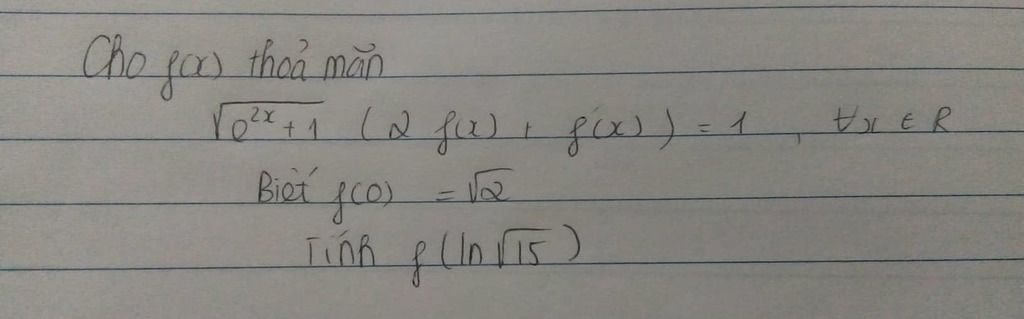 Cho f(x) thoả mãn
√(e^{2x} + 1) (2 f(x) + f'(x)) = 1 , ∀x ∈ R
Biết f(0) = √2
Tính f(ln√15)